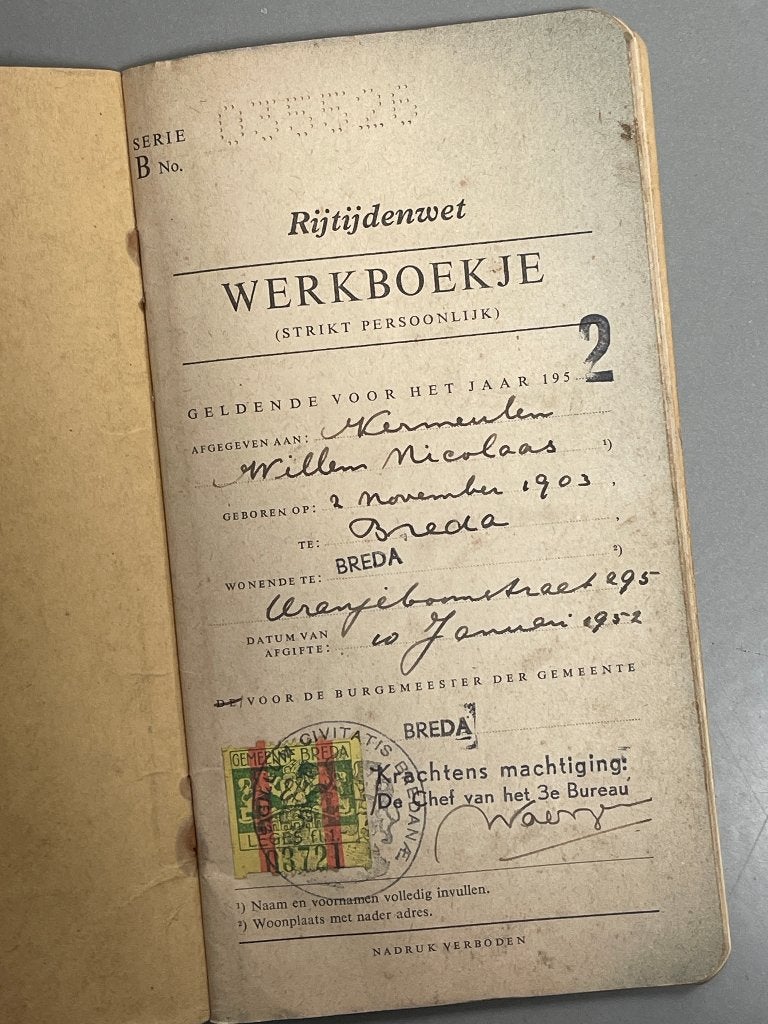 035526
SERIE
B No.
Rijtijdenwet
WERKBOEKJE
(STRIKT PERSOONLIJK)
GELDENDE VOOR HET JAAR 195 2
AFGEGEVEN AAN: Vermeulen
Willem Nicolaas ¹)
GEBOREN OP: 2 november 1903,
TE: Breda,
WONENDE TE: BREDA ²)
Oranjeboomstraat 295
DATUM VAN
AFGIFTE: 10 Januari 1952
DE/VOOR DE BURGEMEESTER DER GEMEENTE
BREDA
Krachtens machtiging:
De Chef van het 3e Bureau
GEMEENTE BREDA
LEGES fl. 1.
03721
CIVITATIS BREDANÆ
¹) Naam en voornamen volledig invullen.
²) Woonplaats met nader adres.
NADRUK VERBODEN